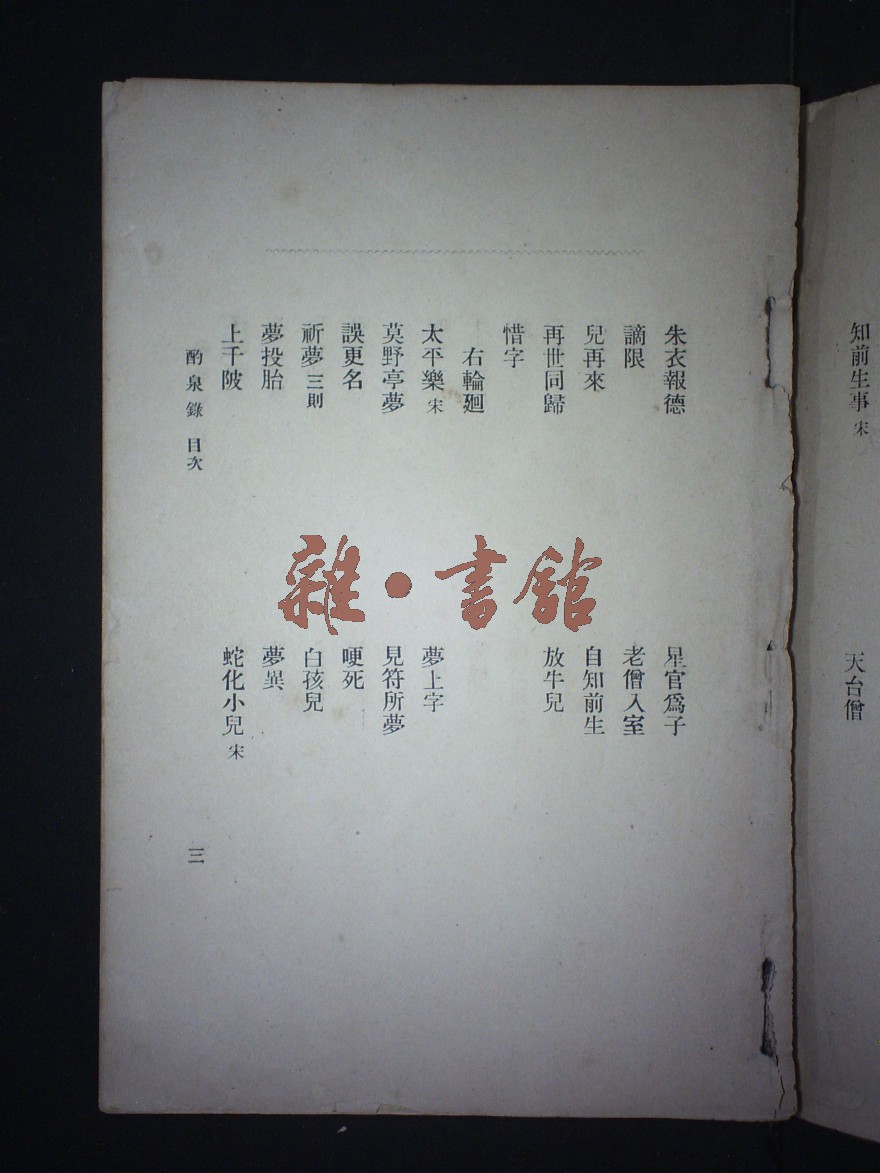 知前生事 宋
天台僧
朱衣報德
星官爲子
謫限
老僧入室
兒再來
自知前生
再世同歸
放牛兒
惜字
右輪廻
太平樂 宋
夢上字
莫野亭夢
見符所夢
誤更名
哽死
祈夢 三則
白孩兒
夢投胎
夢異
上千陂
蛇化小兒 宋
酌泉錄 目次
三
雜·書館